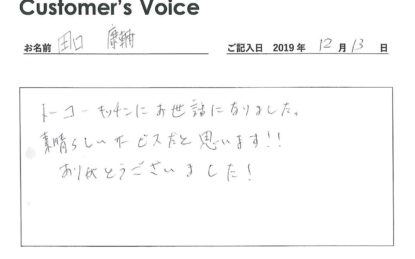 Customer's Voice
お名前 田口 康輔 ご記入日 2019 年 12 月 13 日
トーコーキッチンにお世話になりました。
素晴らしいサービスだと思います!!
ありがとうございました!